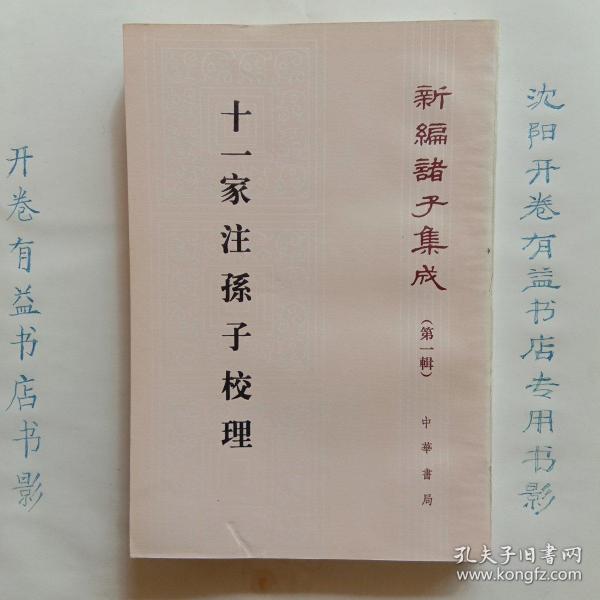 新編諸子集成
（第一輯）
中華書局
十一家注孫子校理
沈阳开卷有益书店专用书影
开卷有益书店书影
孔夫子旧书网
www.kongfz.com